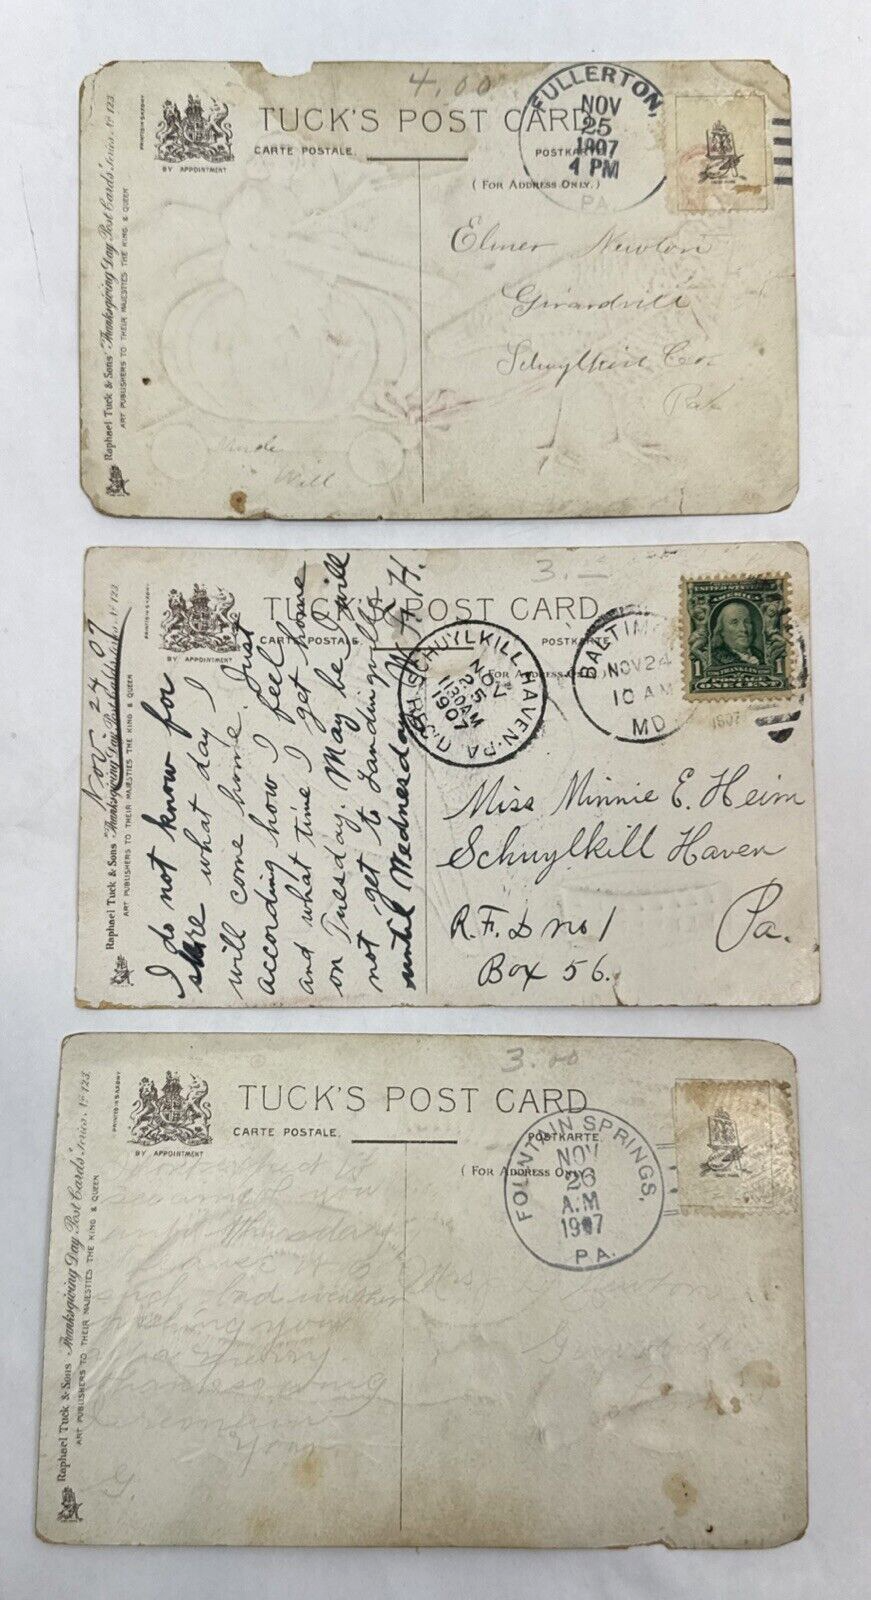 4.00
TUCK'S POST CARD
CARTE POSTALE.
POSTKARTE.
(FOR ADDRESS ONLY.)
BY APPOINTMENT
PRINTED IN SAXONY
Raphael Tuck & Sons' "Thanksgiving Day Post Cards" Series, No 123.
ART PUBLISHERS TO THEIR MAJESTIES THE KING & QUEEN
FULLERTON,
NOV
25
1907
4 PM
PA.
Elmer Newton
Girardvill
Schuylkill Co.
Pa.
Will
3.—
TUCK'S POST CARD
CARTE POSTALE
POSTKARTE
BY APPOINTMENT
PRINTED IN SAXONY
Raphael Tuck & Sons "Thanksgiving Day Post Cards" Series, No 123.
ART PUBLISHERS TO THEIR MAJESTIES THE KING & QUEEN
Nov. 24 07
I do not know for
sure what day I
will come home. Just
according how I feel
and what time I get home
on Tuesday. May be I will
not get to Landingville
until Wednesday. W. H. H.
SCHUYLKILL HAVEN. PA
NOV
25
11 30 AM
1907
REC'D
BALTIMO
NOV 24
10 AM
MD
1907
UNITED STATES OF AMERICA
FRANKLIN
POSTAGE
1 ONE CENT 1
Miss Minnie E. Heim
Schuylkill Haven
R.F.D no 1
Pa.
Box 56.
3.00
TUCK'S POST CARD
CARTE POSTALE.
POSTKARTE.
(FOR ADDRESS ONLY.)
BY APPOINTMENT
PRINTED IN SAXONY
Raphael Tuck & Sons' "Thanksgiving Day Post Cards" Series, No 123.
ART PUBLISHERS TO THEIR MAJESTIES THE KING & QUEEN
FOUNTAIN SPRINGS,
NOV
26
A.M
1907
PA.
Mrs Newton
Thursday
such bad weather